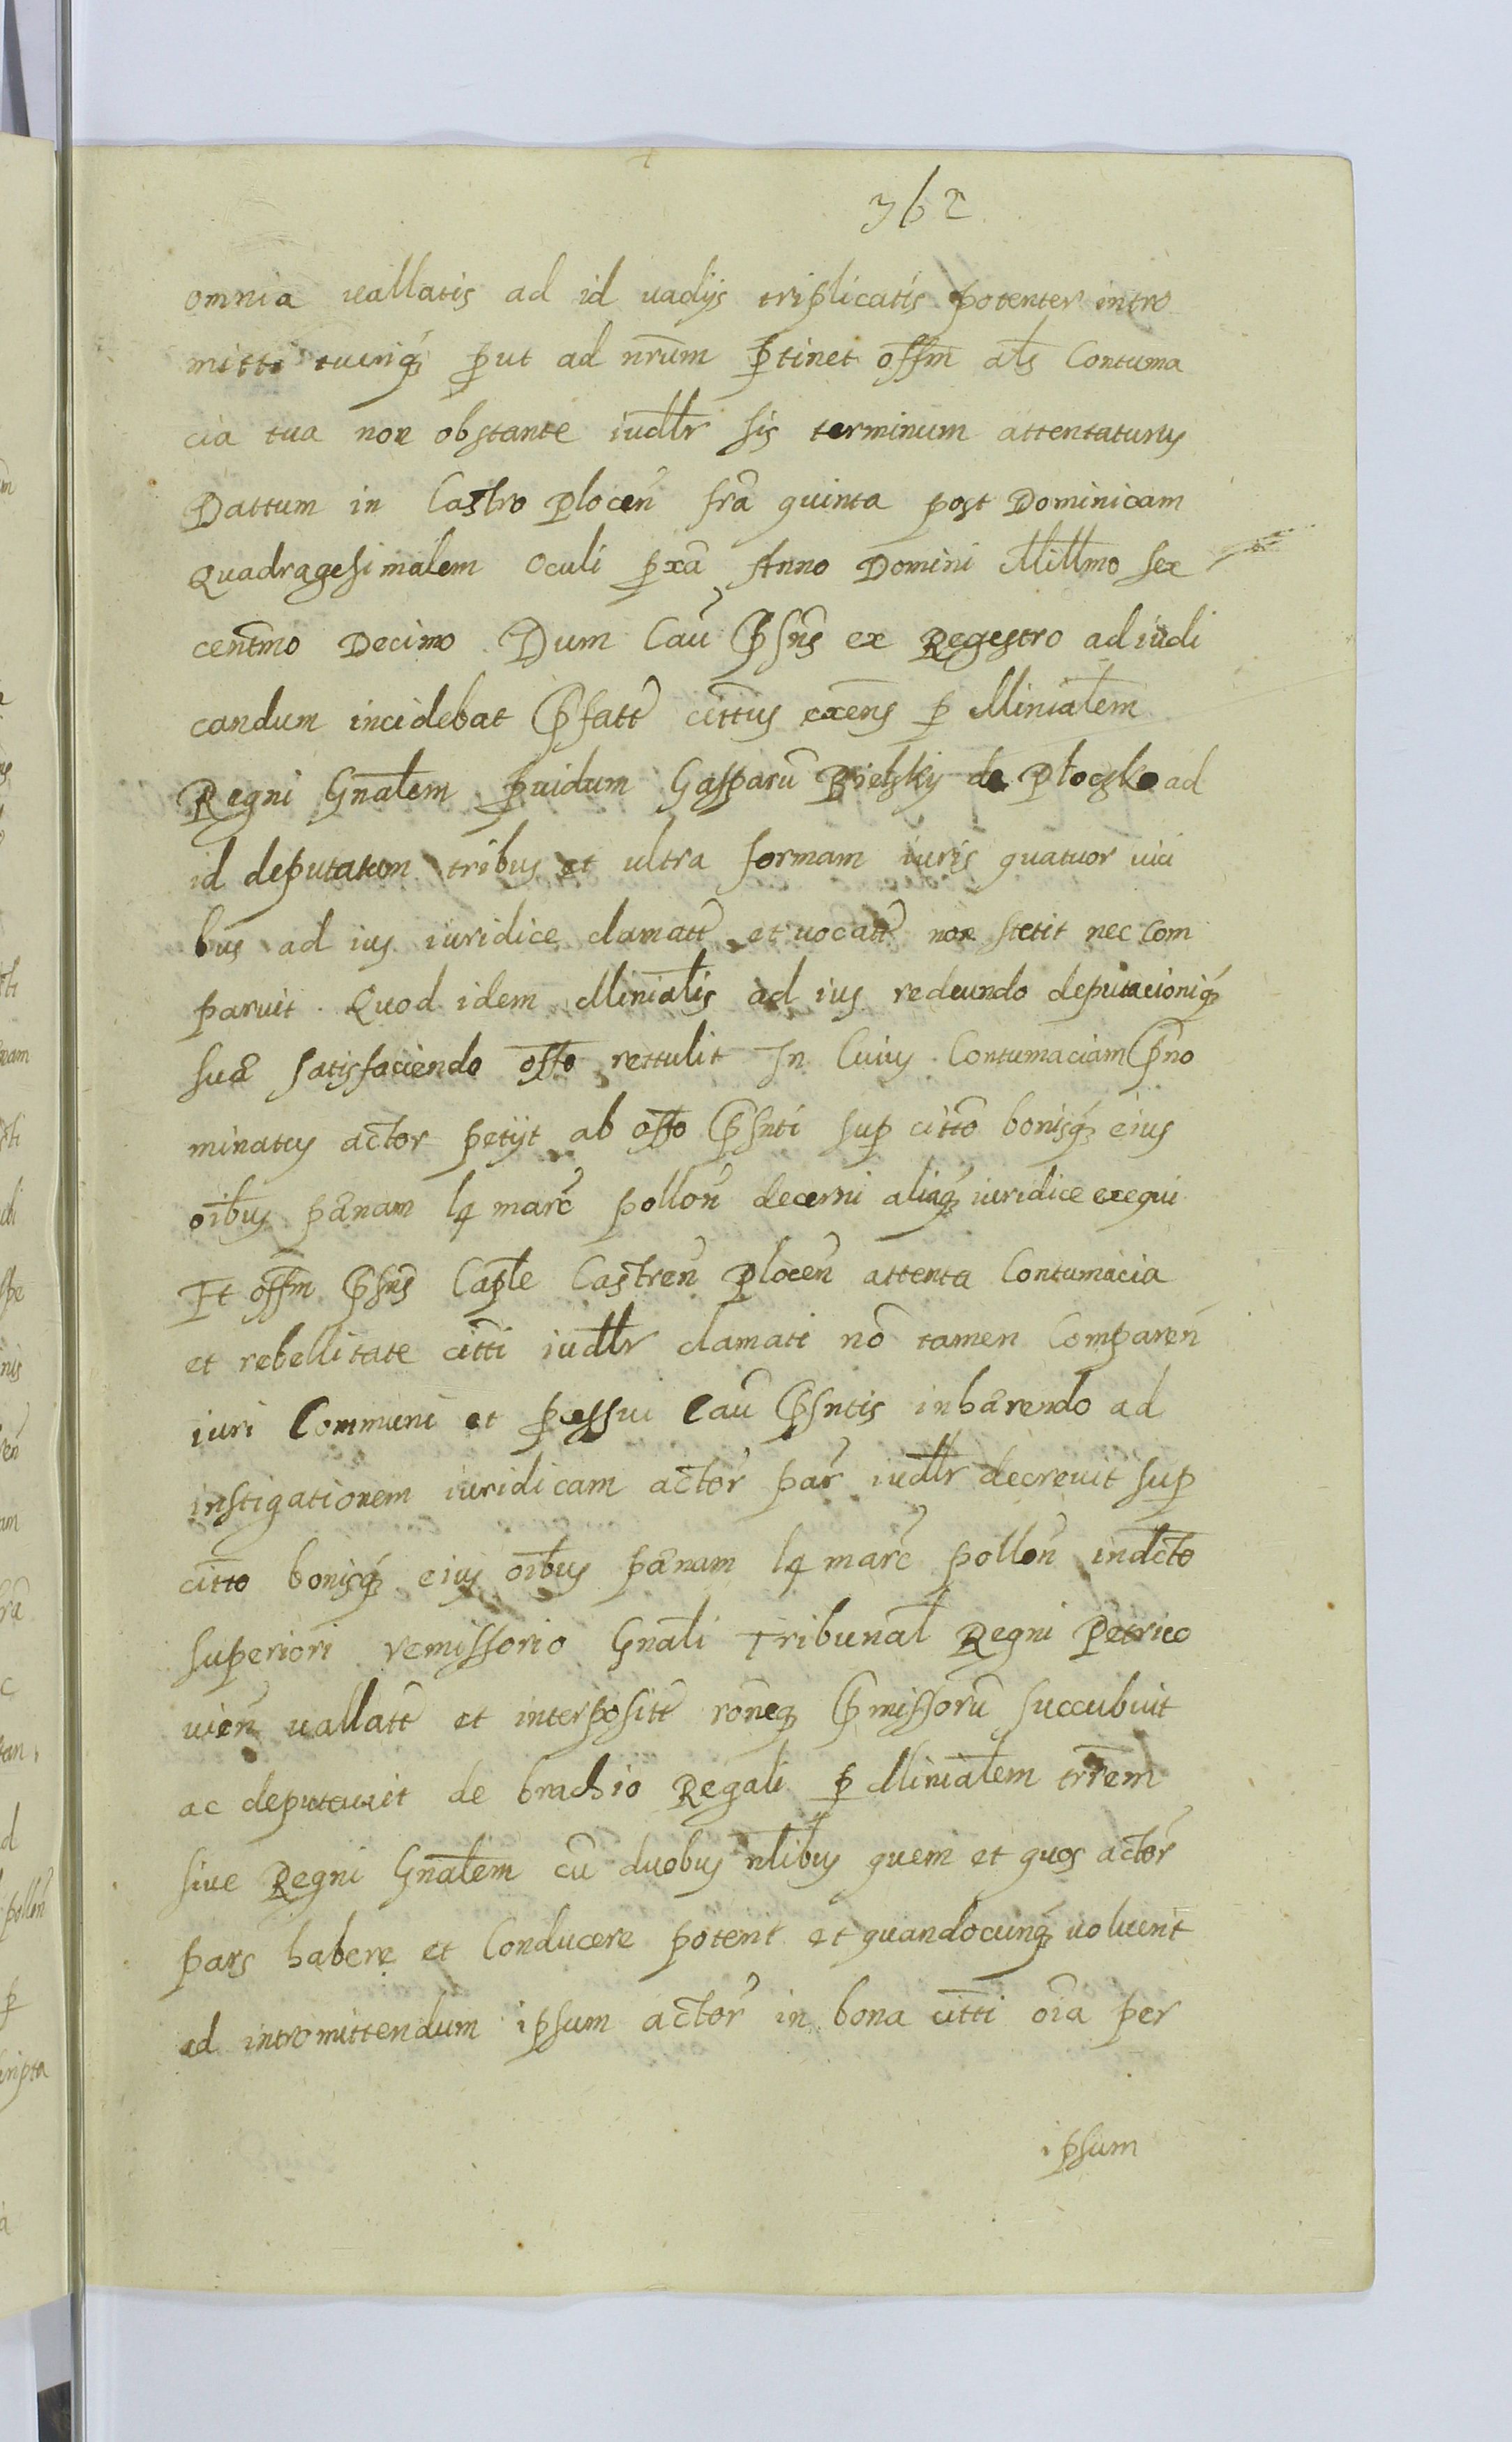 362
omnia uallatis ad id uadijs triplicatis potenter intro
mitti tueriqꝫ ꝓut ad nr̄um ꝑtinet off̄m al̄s Contuma
cia tua non obstante iudl̄r sis terminum attentaturus
Dattum in Castro Plocen̄ fr̄a quinta post Dominicam
Quadragesimalem Oculi ꝓxā Anno Domini Mill̄mo sex
cent̄mo Decimo Dum Cau̅ Pn̄s ex Regestro adiudi
candum incidebat Pfatt̄ citt̄us exen̄s ꝑ Minial̄em
Regni Gn̄al̄em ꝓuidum Gasparū Bielsky de Płoczko ad
id deputatum tribus et ultra formam iuris quatuor uici
bus ad ius iuridice clamatt̄ et uocatt̄ non stetit nec com
paruit. Quod idem Minial̄is ad ius redeundo deputacioniqꝫ
suæ satisfaciendo off̄o rettulit In Cuius Contumaciam Pno
minatus actor petijt ab off̄o Psn̄ti suꝑ citt̄o bonisqꝫ eius
oībus pænam l4 marc̄ pollon̄ decerni aliaqꝫ iuridice exequi
Et off̄m Psn̄s Capt̄le Castren̄ Plocen̄ attenta Contumacia
et rebellitate citt̄i iudl̄r clamati nō tamen Comparen̄
iuri Communi et ꝓcessui Cau̅ Psn̄tis inhærendo ad
instigationem iuridicam actor̄ par̄ iudl̄r decreuit suꝑ
citt̄o bonisqꝫ eius oībus pænam l4 marc̄ pollon̄ indc̄to
superiori remissorio Gn̄ali Tribunal̄ Regni Petrico
uien̄ uallatt̄ et interpositt̄ rōneqꝫ Pmissorū succubuit
ac deputauit de brachio Regali ꝑ Minial̄em trr̄em
siue Regni Gn̄al̄em cū duobus nl̄ibus quem et quos actor̄
pars habere et Conducere poterit et quandocunqꝫ uoluerit
ad intromittendum ipsum actor̄ in bona citt̄i oīa per
ipsum